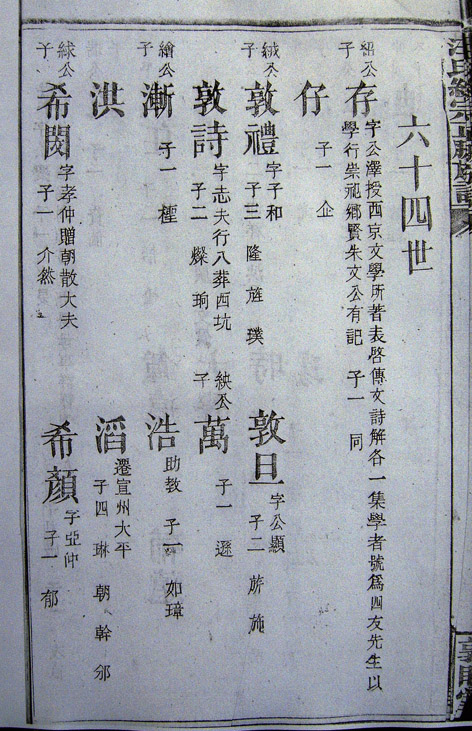 六十四世
紹公子 存 字公澤授西京文學所著表啓傳文詩解各一集學者號爲四友先生以
學行崇祀鄉賢朱文公有記 子一 同
仔 子一 企
絨公子 敦禮 字子和 子三 隆 旌 璞
敦旦 字公顯 子二 旂 施
敦詩 字志夫行八葬西坑 子二 燦 珣
紻公子 萬 子一 遜
繪公子 漸 子一 㮚
浩 助教 子一 如璋
洪
滔 遷宣州大平 子四 琳 朝 幹 邠
絿公子 希閔 字孝仲贈朝散大夫 子一 介然
希顏 字亞仲 子一 郁